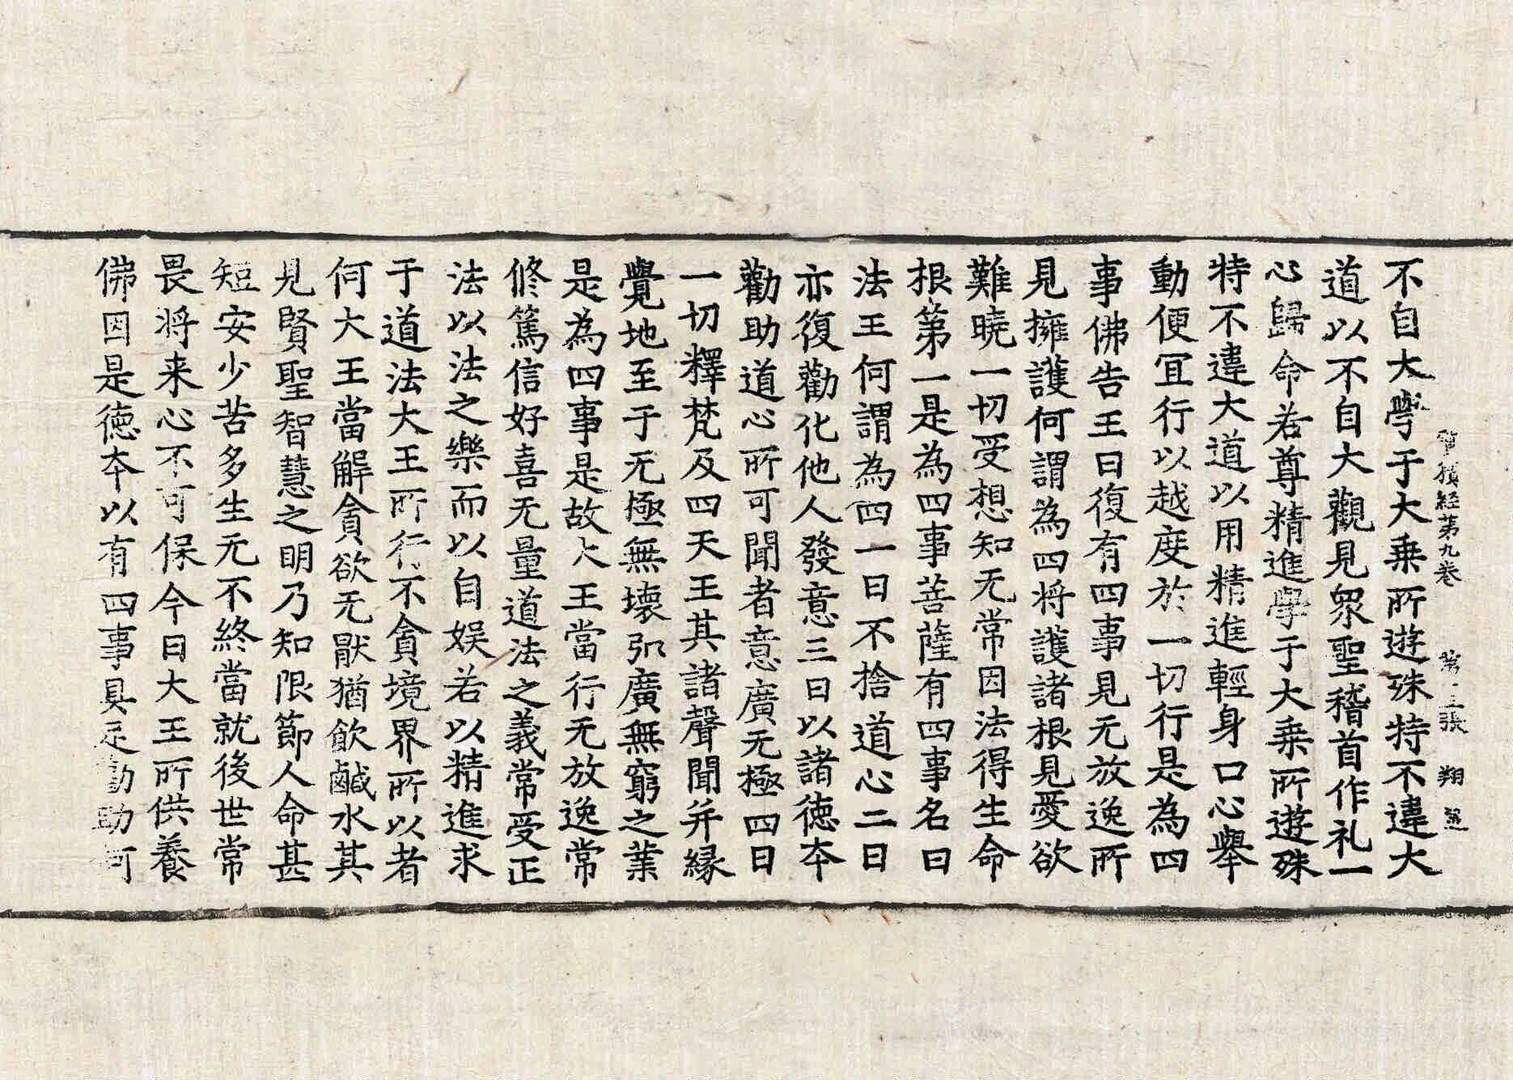 寶積經第九卷　第十三張　翔
不自大學于大乗所遊殊特不違大
道以不自大觀見眾聖稽首作礼一
心歸命若尊精進學于大乗所遊殊
特不違大道以用精進輕身口心舉
動便冝行以越度於一切行是為四
事佛告王曰復有四事見无放逸所
見擁護何謂為四将護諸根見愛欲
難曉一切受想知无常因法得生命
根第一是為四事菩薩有四事名曰
法王何謂為四一曰不捨道心二曰
亦復勸化他人發意三曰以諸徳夲
勸助道心所可聞者意廣无極四曰
一切釋梵及四天王其諸聲聞并縁
覺地至于无極無壊弘廣無窮之業
是為四事是故大王當行无放逸常
修篤信好喜无量道法之義常受正
法以法之樂而以自娛若以精進求
于道法大王所行不貪境界所以者
何大王當解貪欲无猒猶飲鹹水其
見賢聖智慧之明乃知限節人命甚
短安少苦多生无不終當就後世常
畏将来心不可保今日大王所供養
佛因是徳夲以有四事具足勸助何